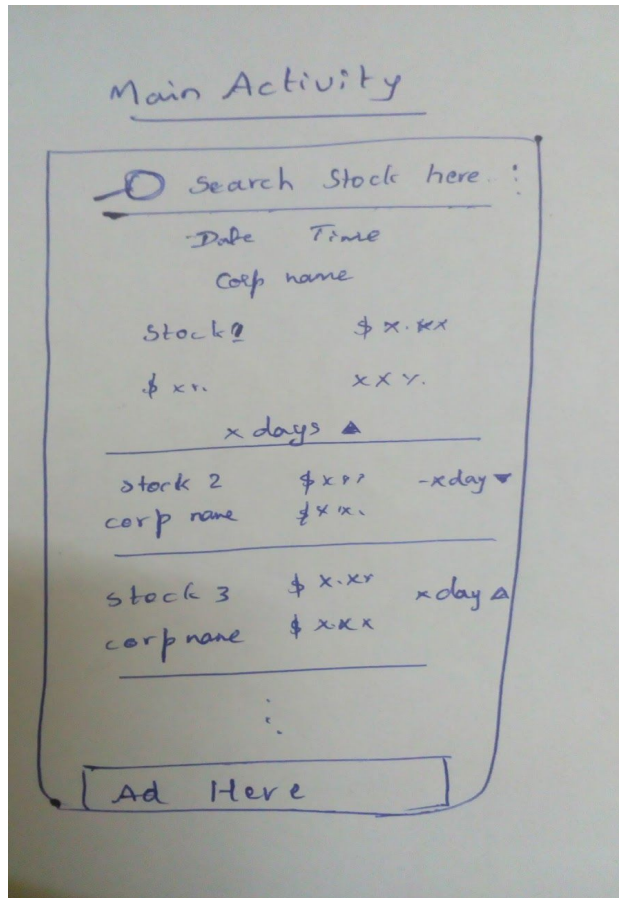 Main Activity
Search Stock here
Date Time
Corp name
Stock $ x.xx
$ xx. xx %.
x days ▲
stock 2 $ x -xday ▼
corp name $ x x.
stock 3 $ x.xx xday △
corp name $ x.x x
Ad Here